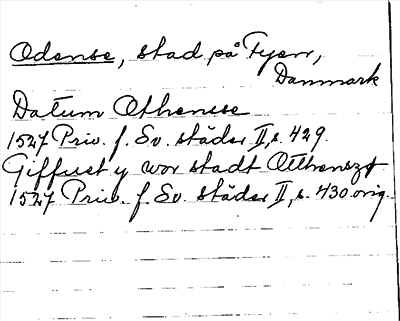 Odense, stad på Fyen,
Danmark
Datum Othensse
1527 Priv. f. Sv. städer II, s. 429.
Giffust y wor stadt Otthensz
1527 Priv. f. Sv. städer II, s. 430 orig.